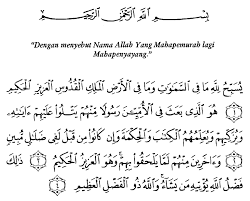 بِسْمِ اللَّهِ الرَّحْمَٰنِ الرَّحِيمِ
"Dengan menyebut Nama Allah Yang Mahapemurah lagi
Mahapenyayang."
يُسَبِّحُ لِلَّهِ مَا فِي السَّمَٰوَٰتِ وَمَا فِي الْأَرْضِ الْمَلِكِ الْقُدُّوسِ الْعَزِيزِ الْحَكِيمِ
﴿١﴾ هُوَ الَّذِي بَعَثَ فِي الْأُمِّيِّينَ رَسُولًا مِّنْهُمْ يَتْلُوا عَلَيْهِمْ ءَايَٰتِهِ
وَيُزَكِّيهِمْ وَيُعَلِّمُهُمُ الْكِتَٰبَ وَالْحِكْمَةَ وَإِن كَانُوا مِن قَبْلُ لَفِي ضَلَٰلٍ مُّبِينٍ
﴿٢﴾ وَءَاخَرِينَ مِنْهُمْ لَمَّا يَلْحَقُوا بِهِمْ وَهُوَ الْعَزِيزُ الْحَكِيمُ ﴿٣﴾ ذَٰلِكَ
فَضْلُ اللَّهِ يُؤْتِيهِ مَن يَشَاءُ وَاللَّهُ ذُو الْفَضْلِ الْعَظِيمِ ﴿٤﴾